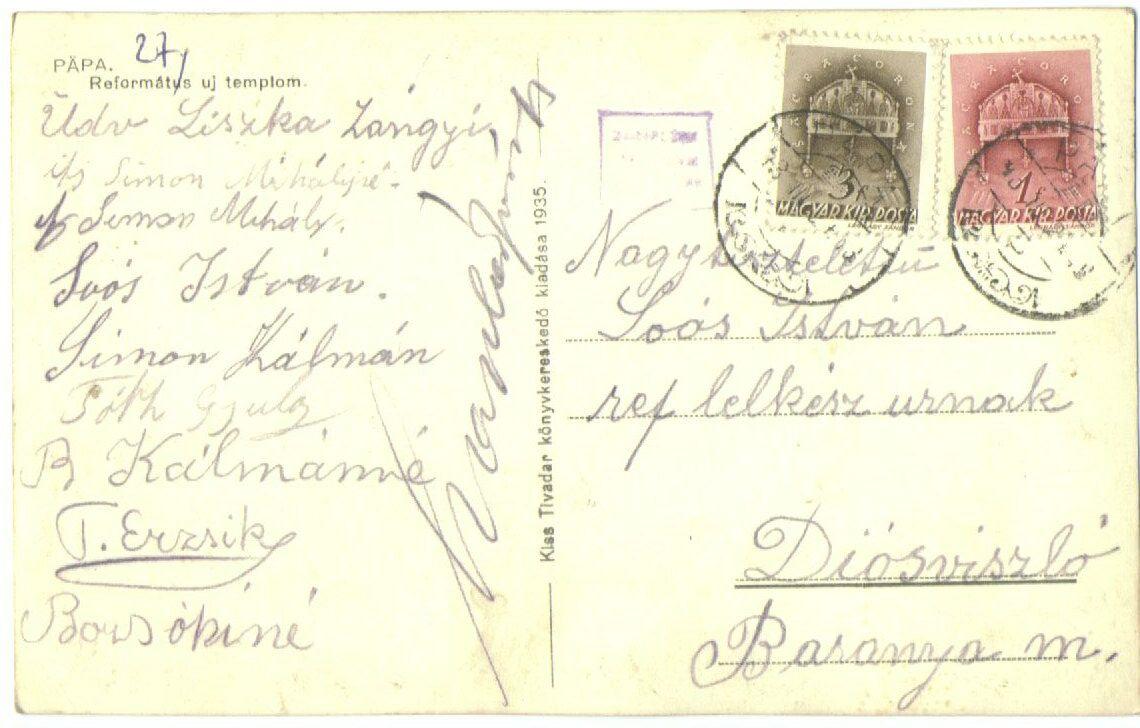 PÁPA.
27,
Református uj templom.
Üdv Liszka Zángyi
ifj Simon Mihályné.
ifj Simon Mihály.
Soós István.
Simon Kálmán
Tóth Gyula
B Kálmánné
T. Erzsik
Borsókiné
Kiss Tivadar könyvkereskedő kiadása 1935.
SACRA CORONA
3
MAGYAR KIR. POSTA
LEGRADY SÁNDOR
SACRA CORONA
1
MAGYAR KIR. POSTA
LEGRADY SÁNDOR
Nagytiszteletű
Soós István
ref lelkész urnak
Diósviszló
Baranya m.